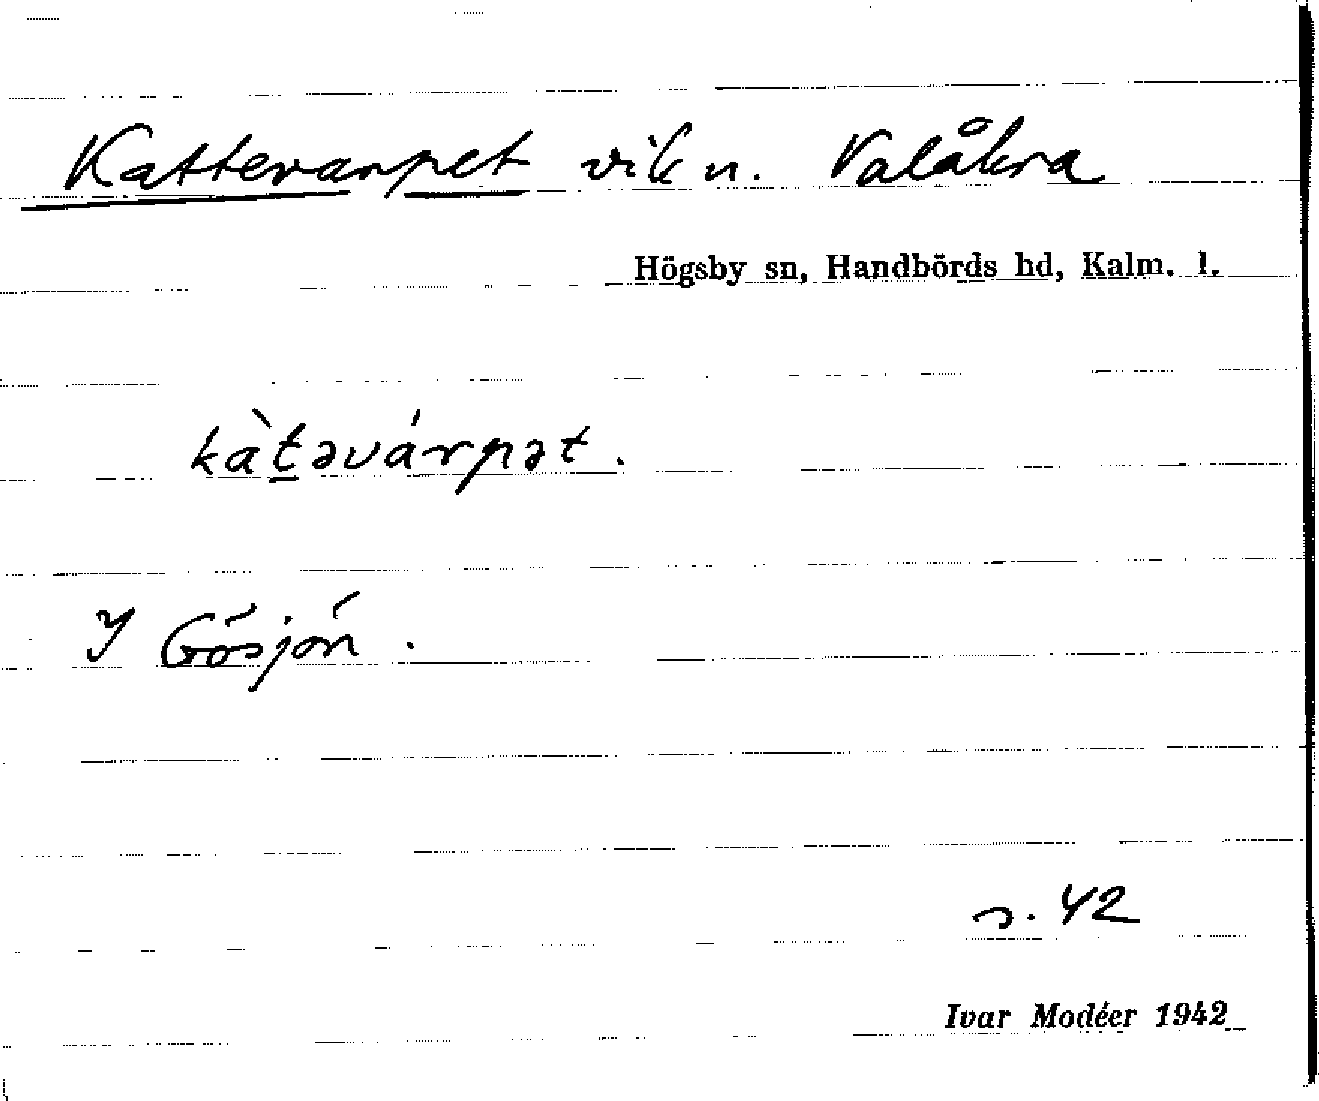 Kattevarpet vik n. Valåkra
Högsby sn, Handbörds hd, Kalm. l.
kàt̲əvárpət.
I Gösjön.
s. 42
Ivar Modéer 1942